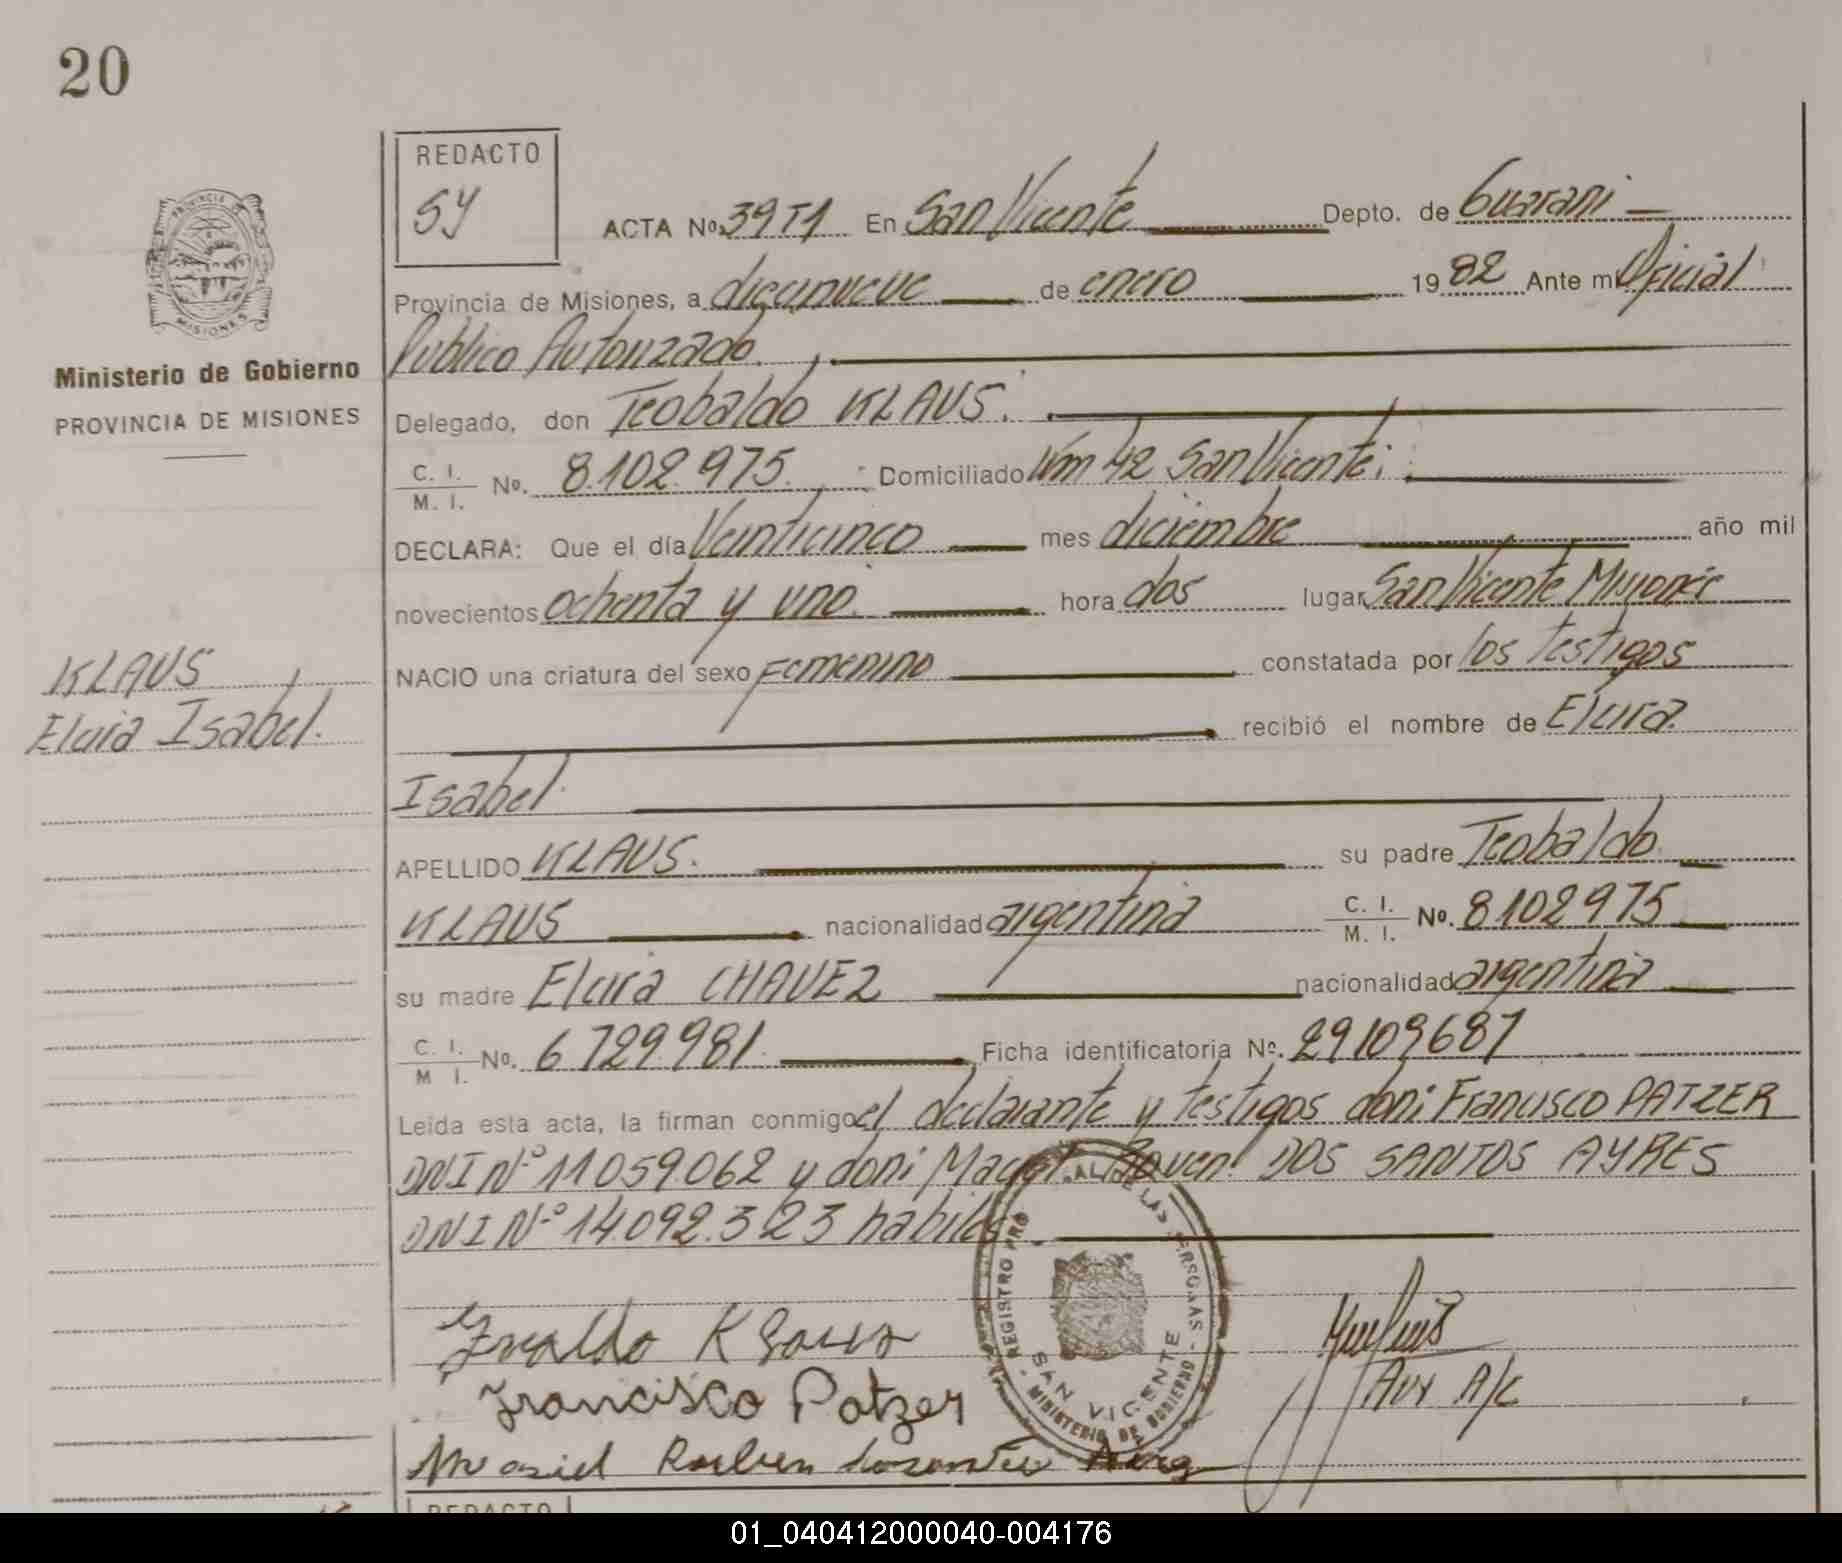 20
REDACTO
SY
ACTA No. 39 T1 En San Vicente Depto. de Guarani
Provincia de Misiones, a diecinueve de enero 1982 Ante mi Oficial
Publico Autorizado.
Delegado, don Teobaldo KLAUS.
C. I. / M. I. No. 8.102.975. Domiciliado Km 42 San Vicente.
DECLARA: Que el día Veinticinco mes diciembre año mil
novecientos ochenta y uno. hora dos lugar San Vicente Misiones
NACIO una criatura del sexo Femenino constatada por los testigos
recibió el nombre de Elvira
Isabel.
APELLIDO KLAUS. su padre Teobaldo
KLAUS nacionalidad argentina C. I. / M. I. No. 8102975
su madre Elvira CHAVEZ nacionalidad argentina
C. I. / M I. No. 6.729.981. Ficha identificatoria No. 29109687
Leida esta acta, la firman conmigo el declarante y testigos don: Francisco PATZER
DNI Nº 11.059.062 y don: DOS SANTOS AYRES
DNI Nº 14.092.323 habiles.
PROVINCIA DE
MISIONES
Ministerio de Gobierno
PROVINCIA DE MISIONES
KLAUS
Elvira Isabel.
REGISTRO DE LAS PERSONAS
SAN VICENTE
MINISTERIO DE GOBIERNO
Klaus
Francisco Patzer
Aux A/C
REDACTO
01_040412000040-004176